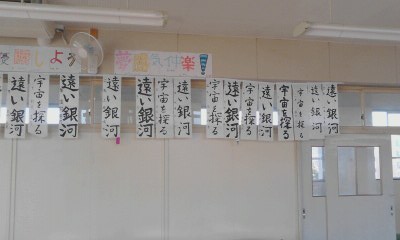 遠い銀河
宇宙を探る
遠い銀河
遠い銀河
遠い銀河
宇宙を探る
遠い銀河
宇宙を探る
遠い銀河
宇宙を探る
遠い銀河
宇宙を探る
宇宙を探る
遠い銀河
遠い銀河